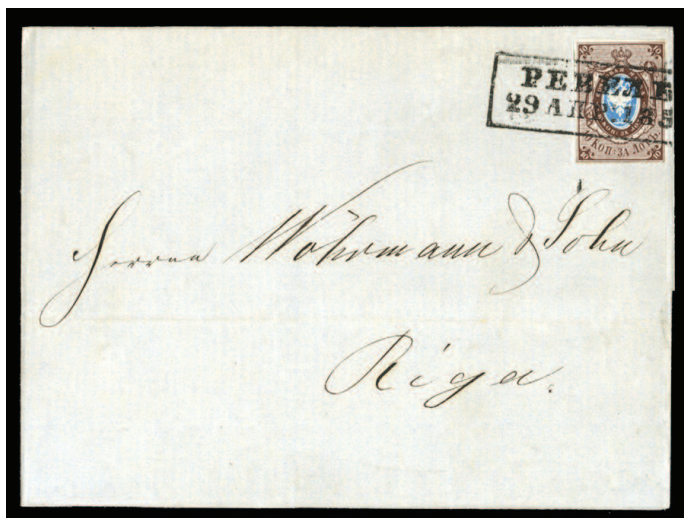 РЕВЕЛЬ
29 АПР. 185
КОП. ЗА ЛОТЪ
Herren Wöhrmann & Sohn
Riga.